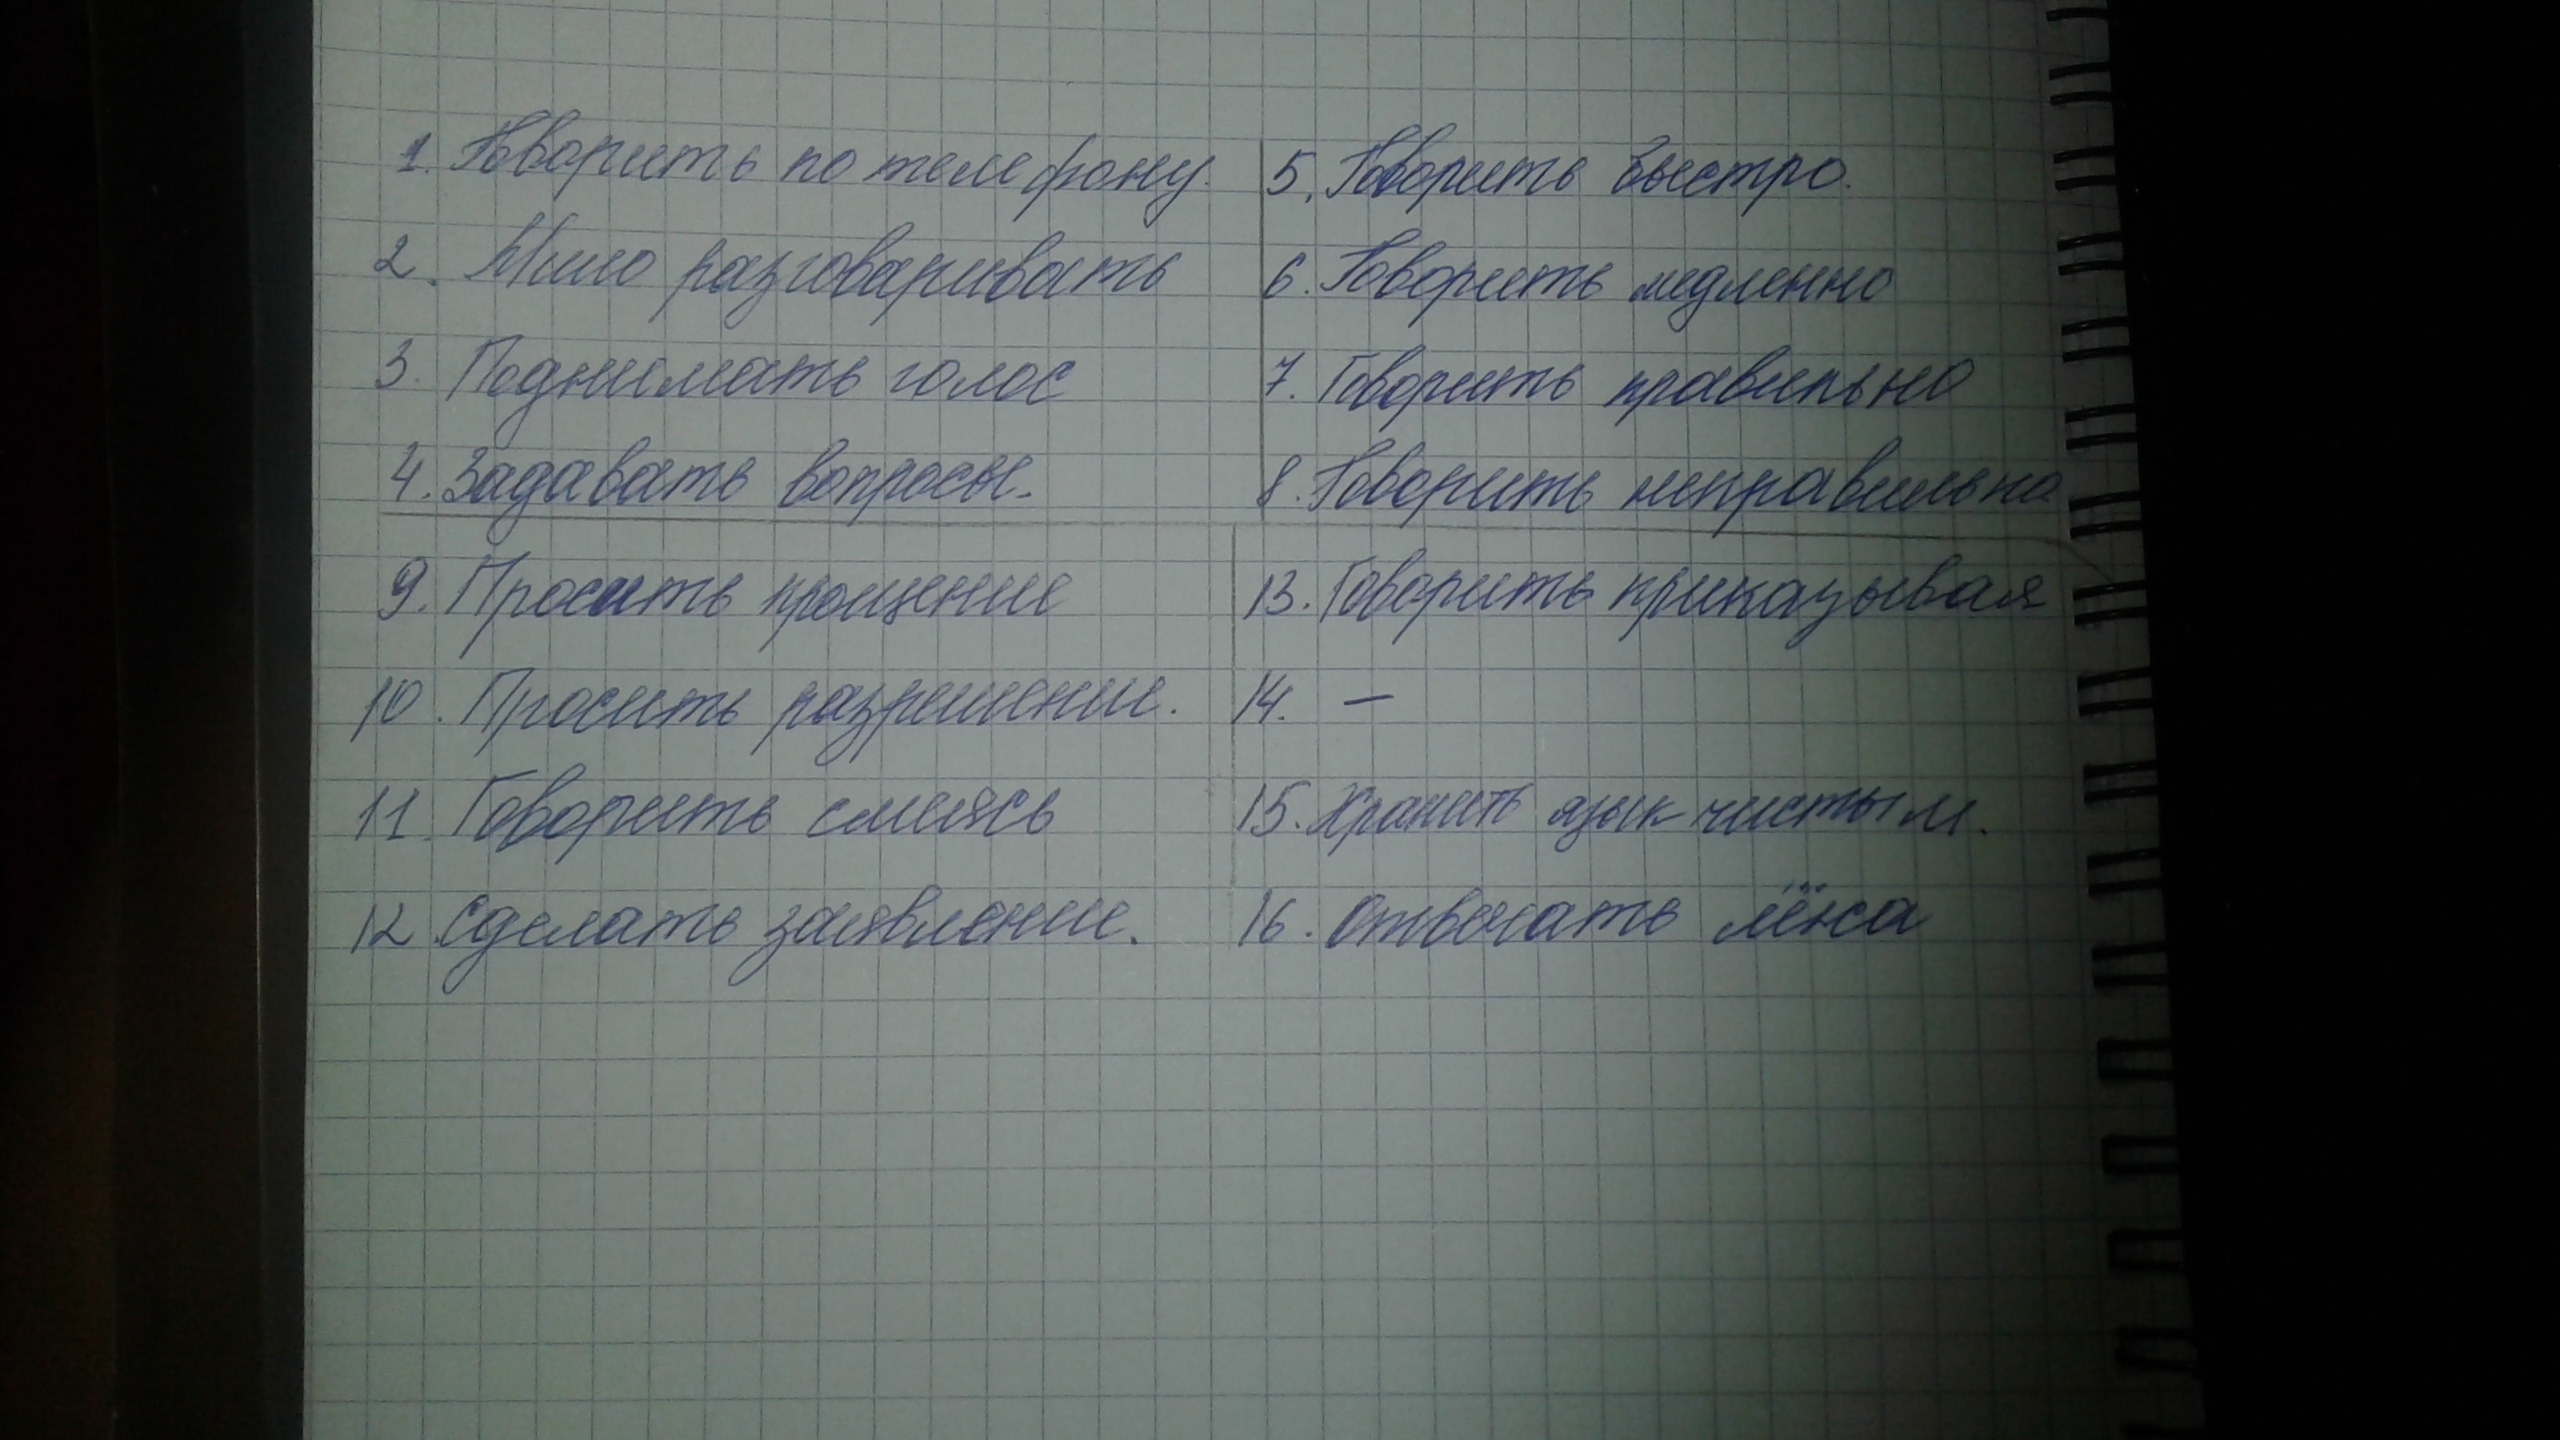 1. Говорить по телефону.
2. Мило разговаривать
3. Поднимать голос
4. Задавать вопросы.
5. Говорить быстро.
6. Говорить медленно
7. Говорить правильно
8. Говорить неправильно
9. Просить прощение
10. Просить разрешение.
11. Говорить смеясь
12. Сделать заявление.
13. Говорить приказывая
14. —
15. Хранить язык чистым.
16. Отвечать